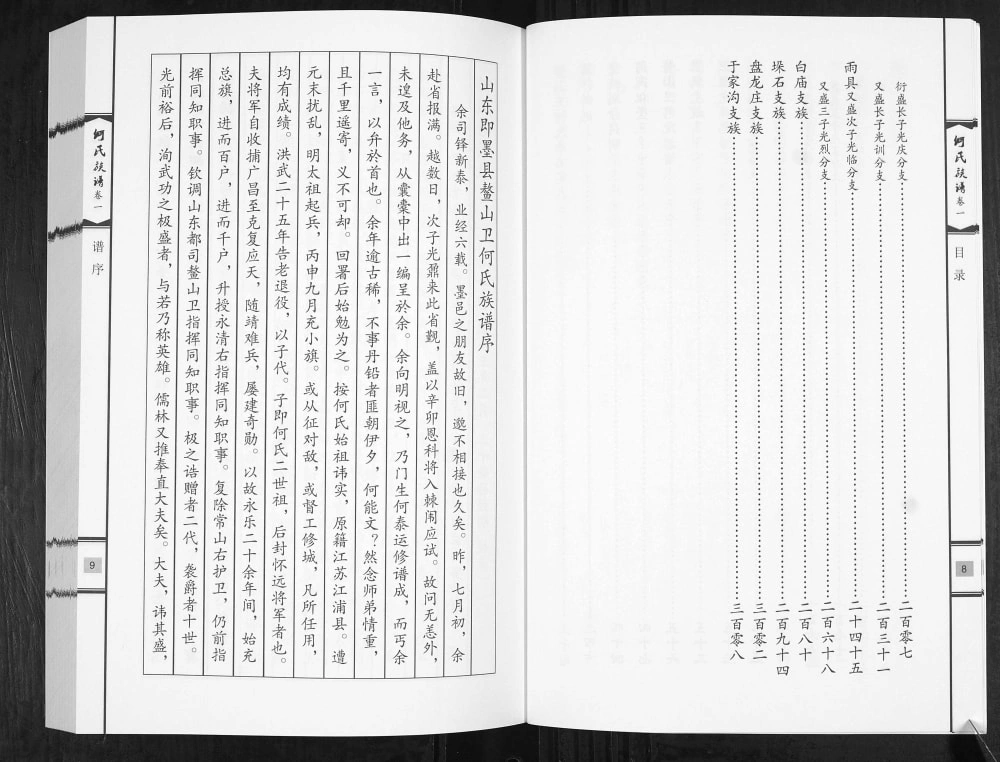 何氏族谱 卷一
目录
8
衍盛长子光庆分支……二百零七
又盛长子光训分支……二百三十一
雨具又盛次子光临分支……二十四十五
又盛三子光烈分支……二百六十八
白庙支族……二百八十
垛石支族……二百九十四
盘龙庄支族……三百零二
于家沟支族……三百零八
山东即墨县鳌山卫何氏族谱序
余司铎新泰，业经六载。墨邑之朋友故旧，邈不相接也久矣。昨，七月初，余
赴省报满。越数日，次子光鼐来此省觐，盖以辛卯恩科将入棘闱应试。故问无恙外，
未遑及他务，从囊橐中出一编呈於余。余向明视之，乃门生何泰运修谱成，而丐余
一言，以弁於首也。余年逾古稀，不事丹铅者匪朝伊夕，何能文？然念师弟情重，
且千里遥寄，义不可却。回署后始勉为之。按何氏始祖讳实，原籍江苏江浦县。遭
元末扰乱，明太祖起兵，丙申九月充小旗。或从征对敌，或督工修城，凡所任用，
均有成绩。洪武二十五年告老退役，以子代。子即何氏二世祖，后封怀远将军者也。
夫将军自收捕广昌至克复应天，随靖难兵，屡建奇勋。以故永乐二十余年间，始充
总旗，进而百户，进而千户，升授永清右指挥同知职事。复除常山右护卫，仍前指
挥同知职事。钦调山东都司鳌山卫指挥同知职事。极之诰赠者二代，袭爵者十世。
光前裕后，洵武功之极盛者，与若乃称英雄。儒林又推奉直大夫矣。大夫，讳其盛，
何氏族谱 卷一
谱序
9